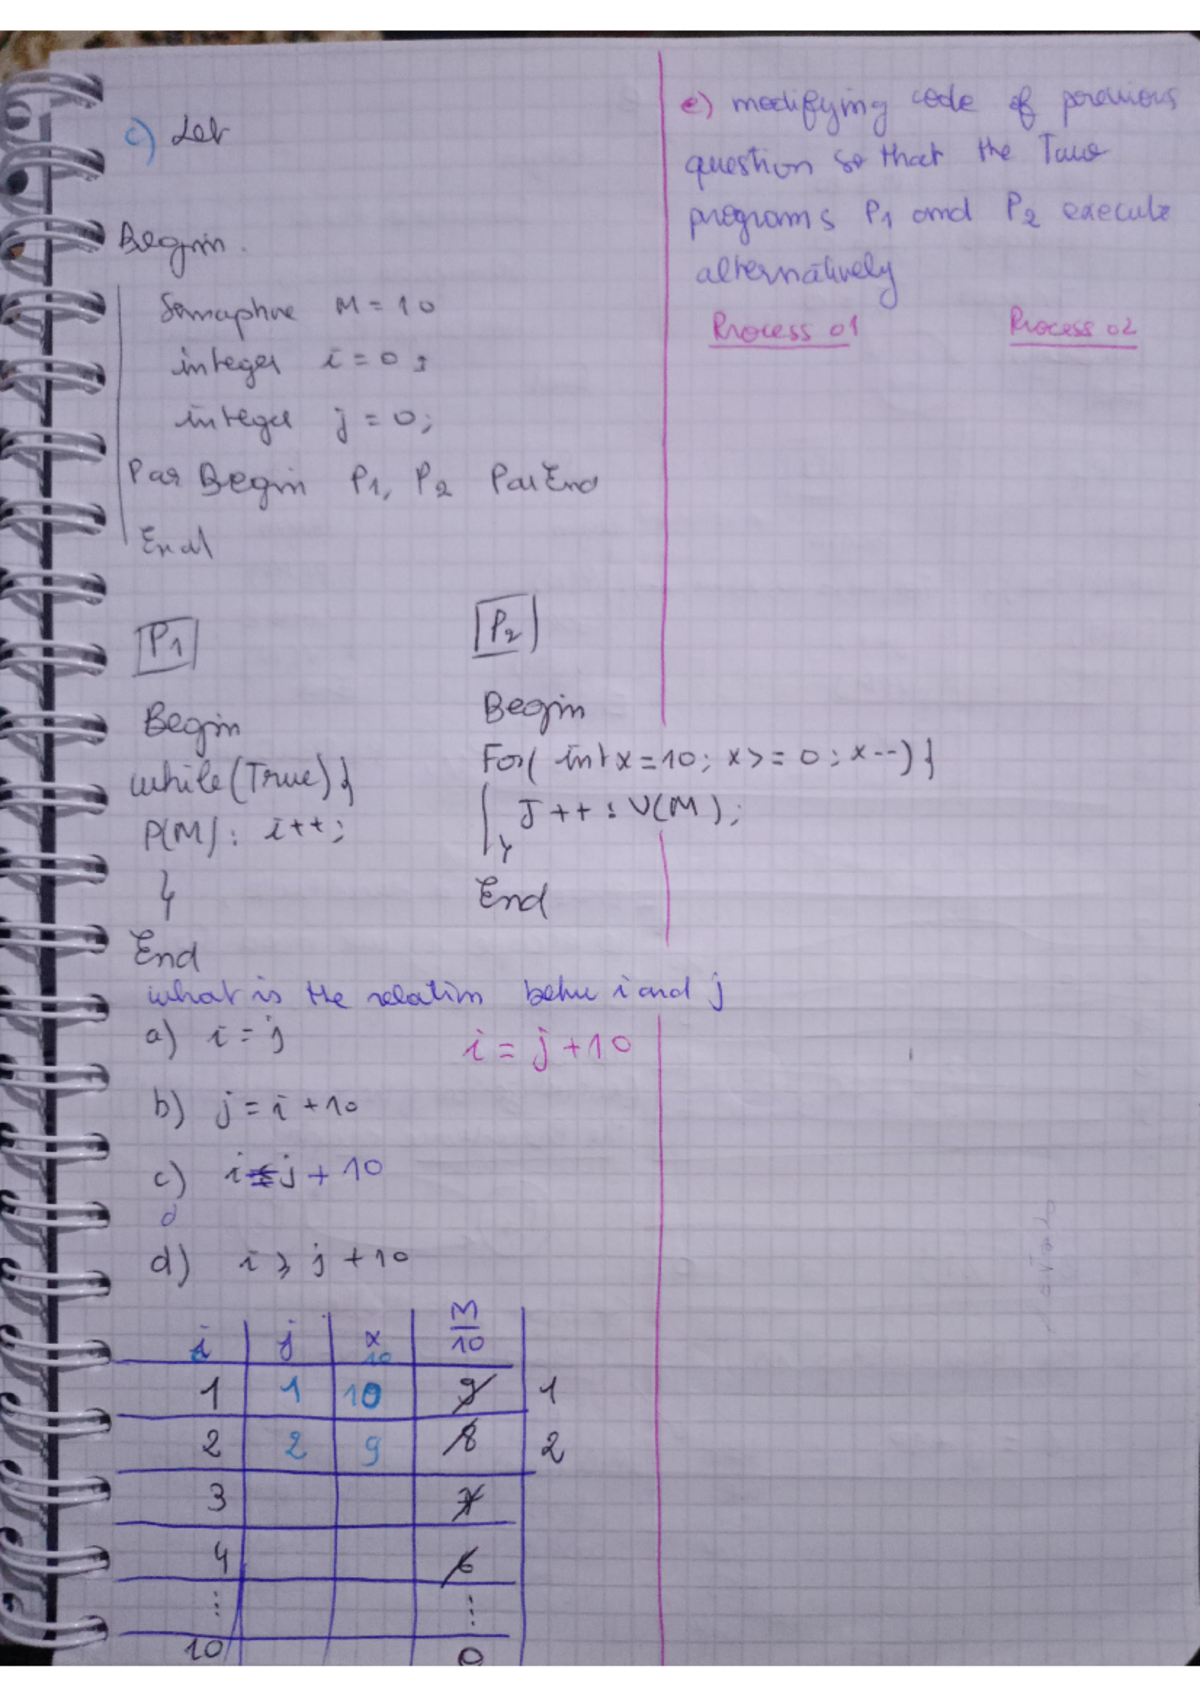 c) Let
Begin.
Semaphore M = 10
integer i = 0 ;
integer j = 0;
Par Begin P1, P2 ParEnd
End
P1
Begin
while(True) {
P(M) ; i++;
}
End
P2
Begin
For( int x = 10; x >= 0 ; x--) {
J++ ; V(M);
}
End
what is the relation betw i and j
a) i = j
i = j + 10
b) j = i + 10
c) i ≤ j + 10
d
d) i ≥ j + 10
i j x M
10 10
1 1 10 9 1
2 2 9 8 2
3 7
4 6
⋮ ⋮
10 0
e) modifying code of previous
question so that the Two
programs P1 and P2 execute
alternatively
Process 01 Process 02